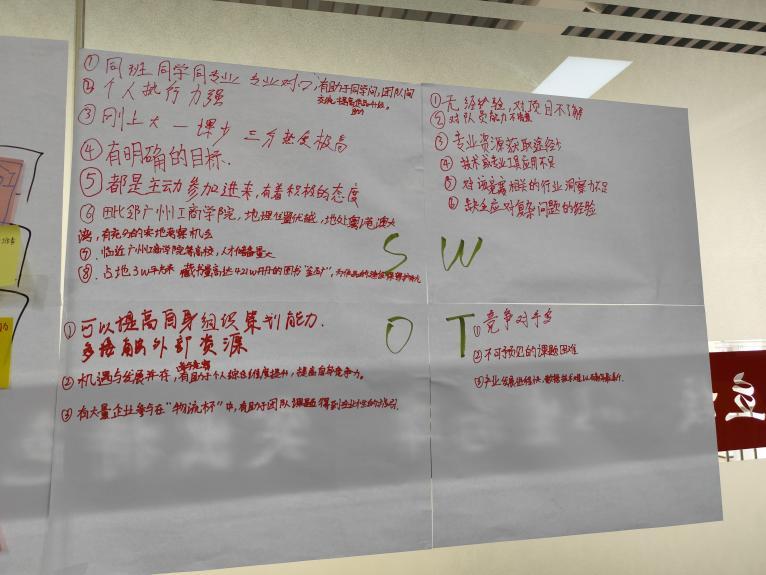 ① 同班同学同专业 专业对口,有助于同学间,团队间
交流,提高作品
② 个人执行力强
③ 刚上大一课少 三分热度极高
④ 有明确的目标.
⑤ 都是主动参加进来,有着积极的态度
⑥ 毗邻广州工商学院,地理位置优越,地处粤港澳大
湾,有充分的实地考察机会
⑦. 临近广州工商学院等高校,人才储备量大
⑧. 占地3W平方米 藏书量高达421W册的图书"
S
① 无经验,对项目不了解
② 对队员能力不
③ 专业资源获取途径少
④ 技术或专业工具应用不足
⑤ 对该竞赛相关的行业洞察力不足
⑥ 缺乏应对复杂问题的经验
W
① 可以提高自身组织策划能力.
多接触外部资源
② 机遇与发展并存,有助于个人综合维度提升,提高自身竞争力。
③ 有大量企业参与在"物流杯"中,有助于团队得到
O
① 竞争对手多
② 不可预见的课题困难
③ 产业发展进程快,数据技术难以
T
业